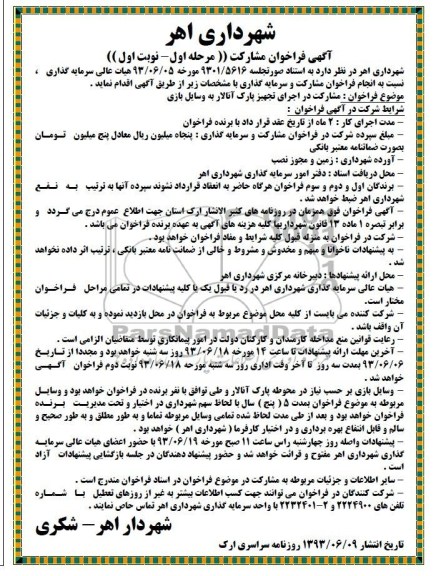 شهرداری اهر
آگهی فراخوان مشارکت (( مرحله اول – نوبت اول ))
شهرداری اهر در نظر دارد به استناد صورتجلسه ۹۳۰۱/۵۶۱۶ مورخه ۹۳/۰۶/۰۵ هیات عالی سرمایه گذاری ،
نسبت به انجام فراخوان مشارکت و سرمایه گذاری با مشخصات زیر از طریق آگهی اقدام نماید .
موضوع فراخوان : مشارکت در اجرای تجهیز پارک آنالار به وسایل بازی
شرایط شرکت در آگهی فراخوان :
– مدت اجرای کار : ۲ ماه از تاریخ عقد قرار داد با برنده فراخوان
– مبلغ سپرده شرکت در فراخوان مشارکت و سرمایه گذاری : پنجاه میلیون ریال معادل پنج میلیون تومان
بصورت ضمانتنامه معتبر بانکی
– آورده شهرداری : زمین و مجوز نصب
– محل دریافت اسناد : دفتر امور سرمایه گذاری شهرداری اهر
– برندگان اول و دوم و سوم فراخوان هرگاه حاضر به انعقاد قرارداد نشوند سپرده آنها به ترتیب به نفع
شهرداری اهر ضبط خواهد شد .
– آگهی فراخوان فوق همزمان در روزنامه های کثیر الانتشار ارک استان جهت اطلاع عموم درج می گردد و
برابر تبصره ۱ ماده ۱۳ قانون شهرداریها کلیه هزینه های آگهی به عهده برنده فراخوان می باشد .
– شرکت در فراخوان به منزله قبول کلیه شرایط و مفاد فراخوان خواهد بود .
– به پیشنهادات ناخوانا و مبهم و مخدوش و مشروط و خالی از ضمانت نامه معتبر بانکی ، ترتیب اثر داده نخواهد
شد .
– محل ارائه پیشنهادها : دبیرخانه مرکزی شهرداری اهر
– هیات عالی سرمایه گذاری شهرداری اهر در رد یا قبول یک یا کلیه پیشنهادات در تمامی مراحل فراخوان
مختار است.
– شرکت کننده می بایست از کلیه محل موضوع مربوط به فراخوان در محل بازدید نموده و به کلیات و جزئیات
آن واقف باشد .
– رعایت قوانین منع مداخله کارمندان و کارکنان دولت در امور پیمانکاری توسط متقاضیان الزامی است .
– آخرین مهلت ارائه پشنهادات تا ساعت ۱۴ مورخه ۹۳/۰۶/۱۸ روز سه شنبه خواهد بود و مجددا از تاریخ
۹۳/۰۶/۰۶ بمدت سه روز تا آخر وقت اداری روز سه شنبه مورخه ۹۳/۰۶/۱۸ نوبت دوم فراخوان آگهی
خواهد شد .
– وسایل بازی بر حسب نیاز در محوطه پارک آنالار و طی توافق با نفر برنده در فراخوان خواهد بود و وسایل
مربوطه به موضوع فراخوان بمدت ۵ ( پنج ) سال با لحاظ سهم شهرداری در اختیار و تحت مدیریت برنده
فراخوان خواهد بود و بعد از طی مدت لحاظ شده تمامی وسایل مربوطه تماما و به طور مطلق و به طور صحیح و
سالم و قابل انتفاع بهره برداری و در اختیار کارفرما ( شهرداری اهر ) خواهد بود .
– پیشنهادات واصله روز چهارشنبه راس ساعت ۱۱ صبح مورخه ۹۳/۰۶/۱۹ با حضور اعضای هیات عالی سرمایه
گذاری شهرداری اهر مفتوح و قرائت خواهد شد و حضور پیشنهاد دهندگان در جلسه بازگشایی پیشنهادات آزاد
است .
– سایر اطلاعات و جزئیات مربوطه به مشارکت در موضوع فراخوان در اسناد فراخوان مندرج است .
– شرکت کنندگان در فراخوان می توانند جهت کسب اطلاعات بیشتر به غیر از روزهای تعطیل با شماره
تلفن های ۲۲۲۴۹۰۰ و ۲-۲۲۳۲۴۰۱ با واحد سرمایه گذاری شهرداری اهر تماس حاصل نمایند .
شهردار اهر – شکری
تاریخ انتشار ۱۳۹۳/۰۶/۰۹ روزنامه سراسری ارک
ParsNamadData